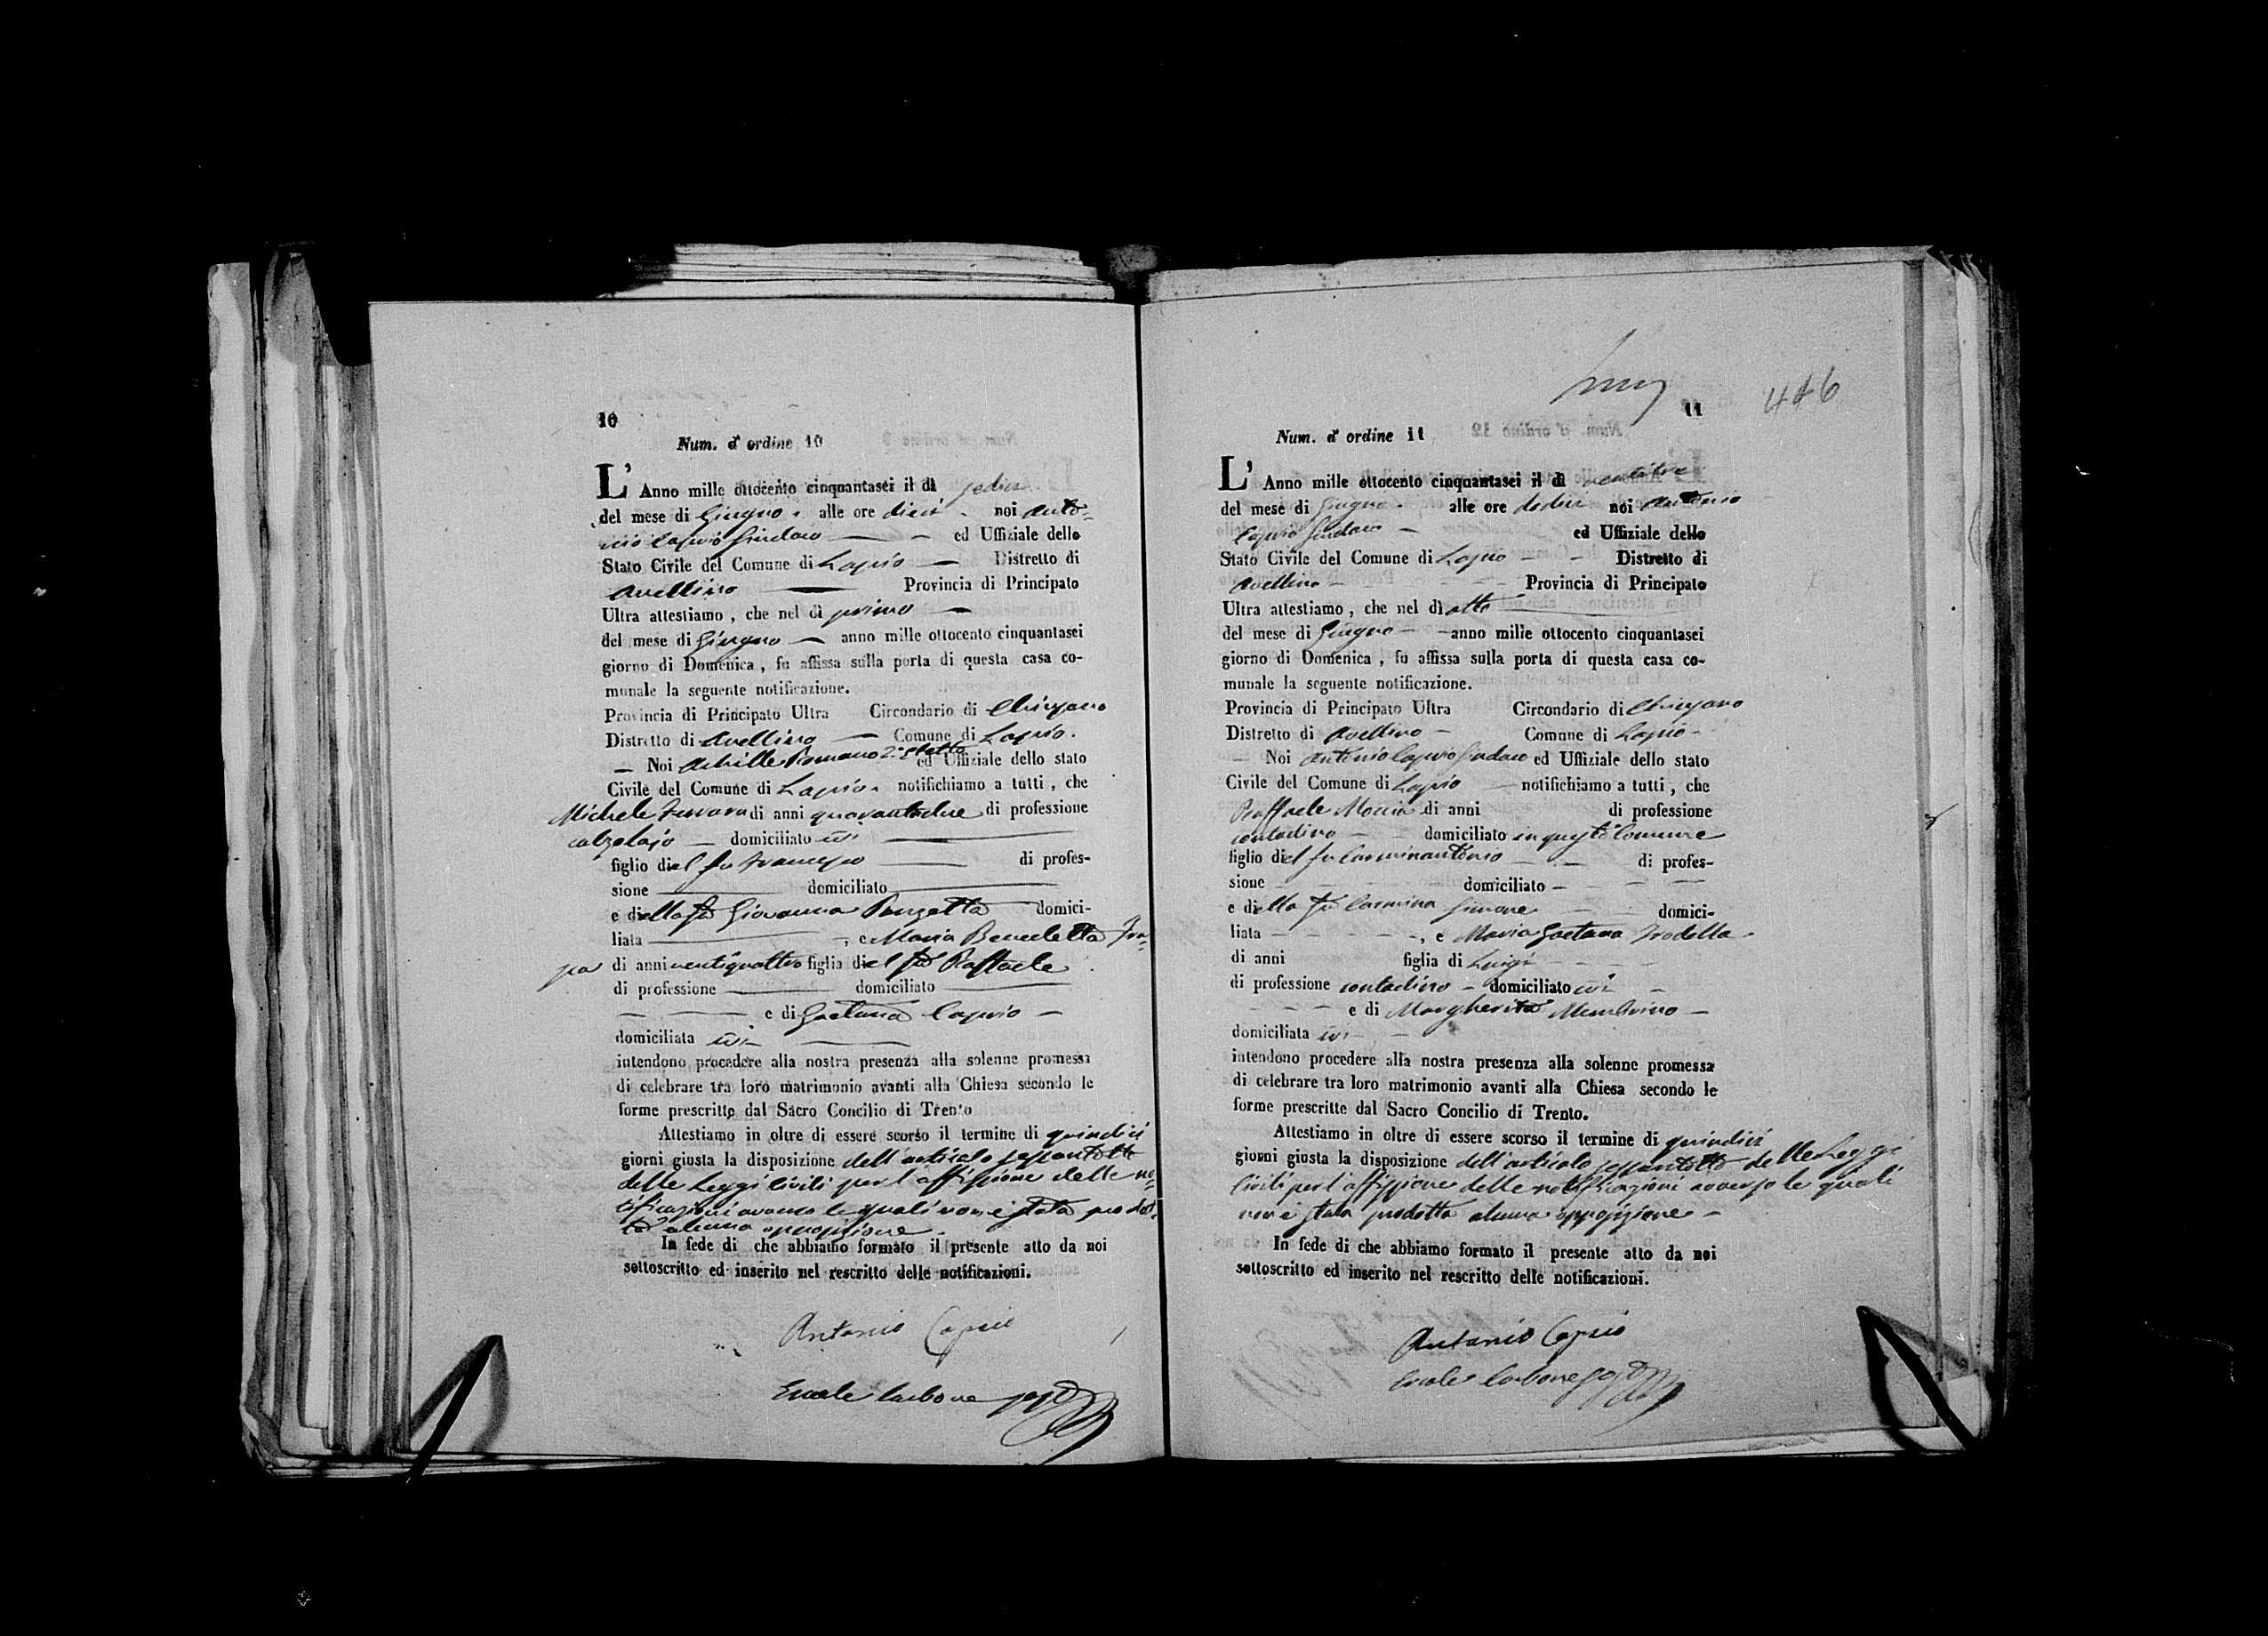 10
Num. d' ordine 10
L' Anno mille ottocento cinquantasei il dì sedici
del mese di Giugno alle ore dieci noi Anto-
nio Caprio Sindaco ed Uffiziale dello
Stato Civile del Comune di Lapio Distretto di
Avellino Provincia di Principato
Ultra attestiamo, che nel dì primo
del mese di Giugno anno mille ottocento cinquantasei
giorno di Domenica, fu affissa sulla porta di questa casa co-
munale la seguente notificazione.
Provincia di Principato Ultra Circondario di Chiusano
Distretto di Avellino Comune di Lapio.
Noi Achille Romano 2° Eletto ed Uffiziale dello stato
Civile del Comune di Lapio notifichiamo a tutti, che
Michele Ferrara di anni quarantadue di professione
calzolajo domiciliato ivi
figlio del fu Francesco di profes-
sione domiciliato
e della fu Giovanna domici-
liata , e Maria Benedetta
di anni ventiquattro figlia del fu Raffaele
di professione domiciliato
e di Gaetana Caprio
domiciliata ivi
intendono procedere alla nostra presenza alla solenne promessa
di celebrare tra loro matrimonio avanti alla Chiesa secondo le
forme prescritte dal Sacro Concilio di Trento
Attestiamo in oltre di essere scorso il termine di quindici
giorni giusta la disposizione dell'articolo sessantotto
delle Leggi Civili per l'affissione delle no-
tificazioni avverso le quali non è stata prodot-
ta alcuna opposizione.
In fede di che abbiamo formato il presente atto da noi
sottoscritto ed inserito nel rescritto delle notificazioni.
Antonio Caprio
Carbone
446
11
Num. d' ordine 11
L' Anno mille ottocento cinquantasei il dì ventitre
del mese di Giugno alle ore dodici noi Antonio
Caprio Sindaco ed Uffiziale dello
Stato Civile del Comune di Lapio Distretto di
Avellino Provincia di Principato
Ultra attestiamo, che nel dì otto
del mese di Giugno anno mille ottocento cinquantasei
giorno di Domenica, fu affissa sulla porta di questa casa co-
munale la seguente notificazione.
Provincia di Principato Ultra Circondario di Chiusano
Distretto di Avellino Comune di Lapio
Noi Antonio Caprio Sindaco ed Uffiziale dello stato
Civile del Comune di Lapio notifichiamo a tutti, che
Raffaele Moccia di anni di professione
contadino domiciliato in questo Comune
figlio del fu Carminantonio di profes-
sione domiciliato
e della fu Carmina Simone domici-
liata , e Maria Gaetana Trodella
di anni figlia di Luigi
di professione contadino domiciliato ivi
e di Margherita Membrino
domiciliata ivi
intendono procedere alla nostra presenza alla solenne promessa
di celebrare tra loro matrimonio avanti alla Chiesa secondo le
forme prescritte dal Sacro Concilio di Trento.
Attestiamo in oltre di essere scorso il termine di quindici
giorni giusta la disposizione dell'articolo sessantotto delle Leggi
Civili per l'affissione delle notificazioni avverso le quali
non è stata prodotta alcuna opposizione
In fede di che abbiamo formato il presente atto da noi
sottoscritto ed inserito nel rescritto delle notificazioni.
Antonio Caprio
Carbone